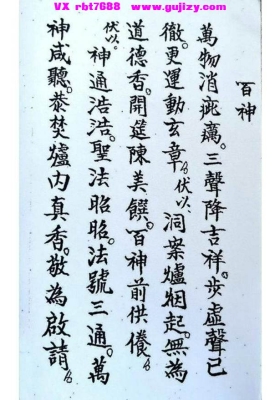 VX rbt7688 www.gujizy.com
百神
萬物消疵癘。三聲降吉祥。步虛聲已
徹。更運動玄章。伏以、洞案爐烟起。無為
道德香。開筵陳美饌。百神前供養
伏以。神通浩浩。聖法昭昭。法號三通。萬
神咸聽。忝焚爐內真香。敬為啟請